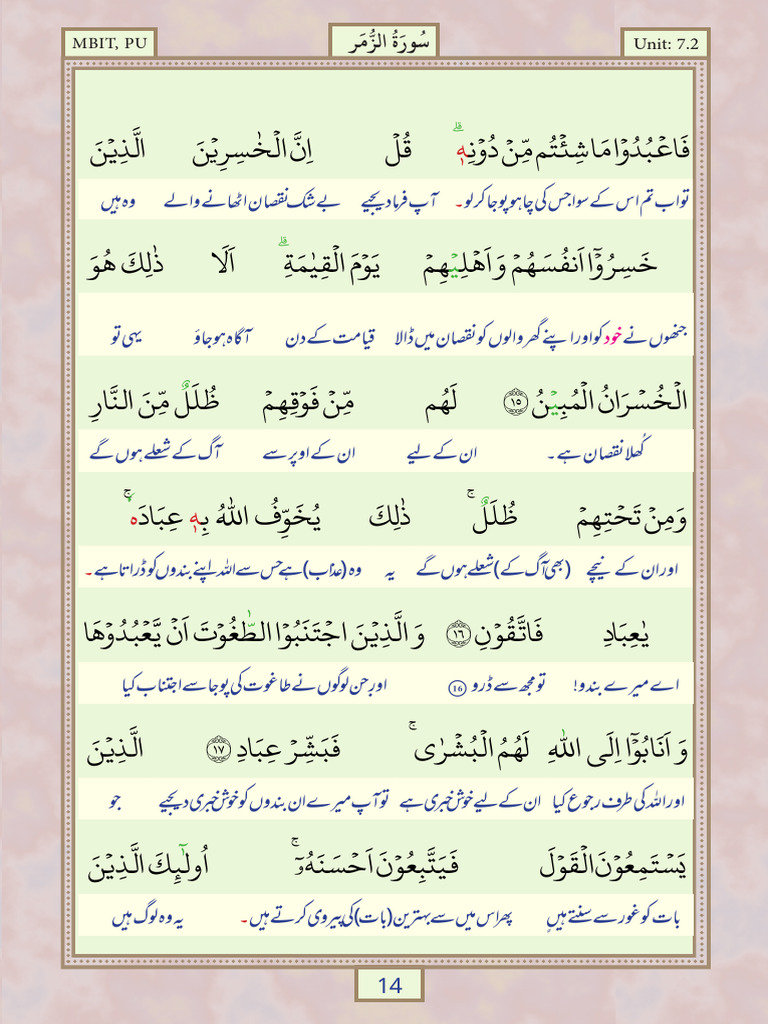 MBIT, PU
سُورَةُ الزُّمَر
Unit: 7.2
فَاعْبُدُوْا مَا شِئْتُم مِّنْ دُوْنِهٖ ؕ قُلْ اِنَّ الْخٰسِرِيْنَ الَّذِيْنَ
تو اب تم اس کے سوا جس کی چاہو پوجا کر لو۔ آپ فرما دیجیے بے شک نقصان اٹھانے والے وہ ہیں
خَسِرُوْٓا اَنفُسَهُمْ وَ اَهْلِيْهِمْ يَوْمَ الْقِيٰمَةِ ؕ اَلَا ذٰلِكَ هُوَ
جنھوں نے خود کو اور اپنے گھر والوں کو نقصان میں ڈالا قیامت کے دن آگاہ ہو جاؤ یہی تو
الْخُسْرَانُ الْمُبِيْنُ ۝١٥ لَهُم مِّنْ فَوْقِهِمْ ظُلَلٌ مِّنَ النَّارِ
کُھلا نقصان ہے۔ ان کے لیے ان کے اوپر سے آگ کے شعلے ہوں گے
وَمِنْ تَحْتِهِمْ ظُلَلٌ ؕ ذٰلِكَ يُخَوِّفُ اللهُ بِهٖ عِبَادَهٗ ؕ
اور ان کے نیچے (بھی آگ کے) شعلے ہوں گے یہ وہ (عذاب) ہے جس سے اللہ اپنے بندوں کو ڈراتا ہے۔
يٰعِبَادِ فَاتَّقُوْنِ ۝١٦ وَ الَّذِيْنَ اجْتَنَبُوا الطّٰغُوْتَ اَنْ يَّعْبُدُوْهَا
اے میرے بندو! تو مجھ سے ڈرو 16 اور جن لوگوں نے طاغوت کی پوجا سے اجتناب کیا
وَ اَنَابُوْٓا اِلَى اللهِ لَهُمُ الْبُشْرٰى ۚ فَبَشِّرْ عِبَادِ ۝١٧ الَّذِيْنَ
اور اللہ کی طرف رجوع کیا ان کے لیے خوش خبری ہے تو آپ میرے ان بندوں کو خوش خبری دیجیے جو
يَسْتَمِعُوْنَ الْقَوْلَ فَيَتَّبِعُوْنَ اَحْسَنَهٗ ؕ اُولٰٓئِكَ الَّذِيْنَ
بات کو غور سے سنتے ہیں پھر اس میں سے بہترین (بات) کی پیروی کرتے ہیں۔ یہ وہ لوگ ہیں
14